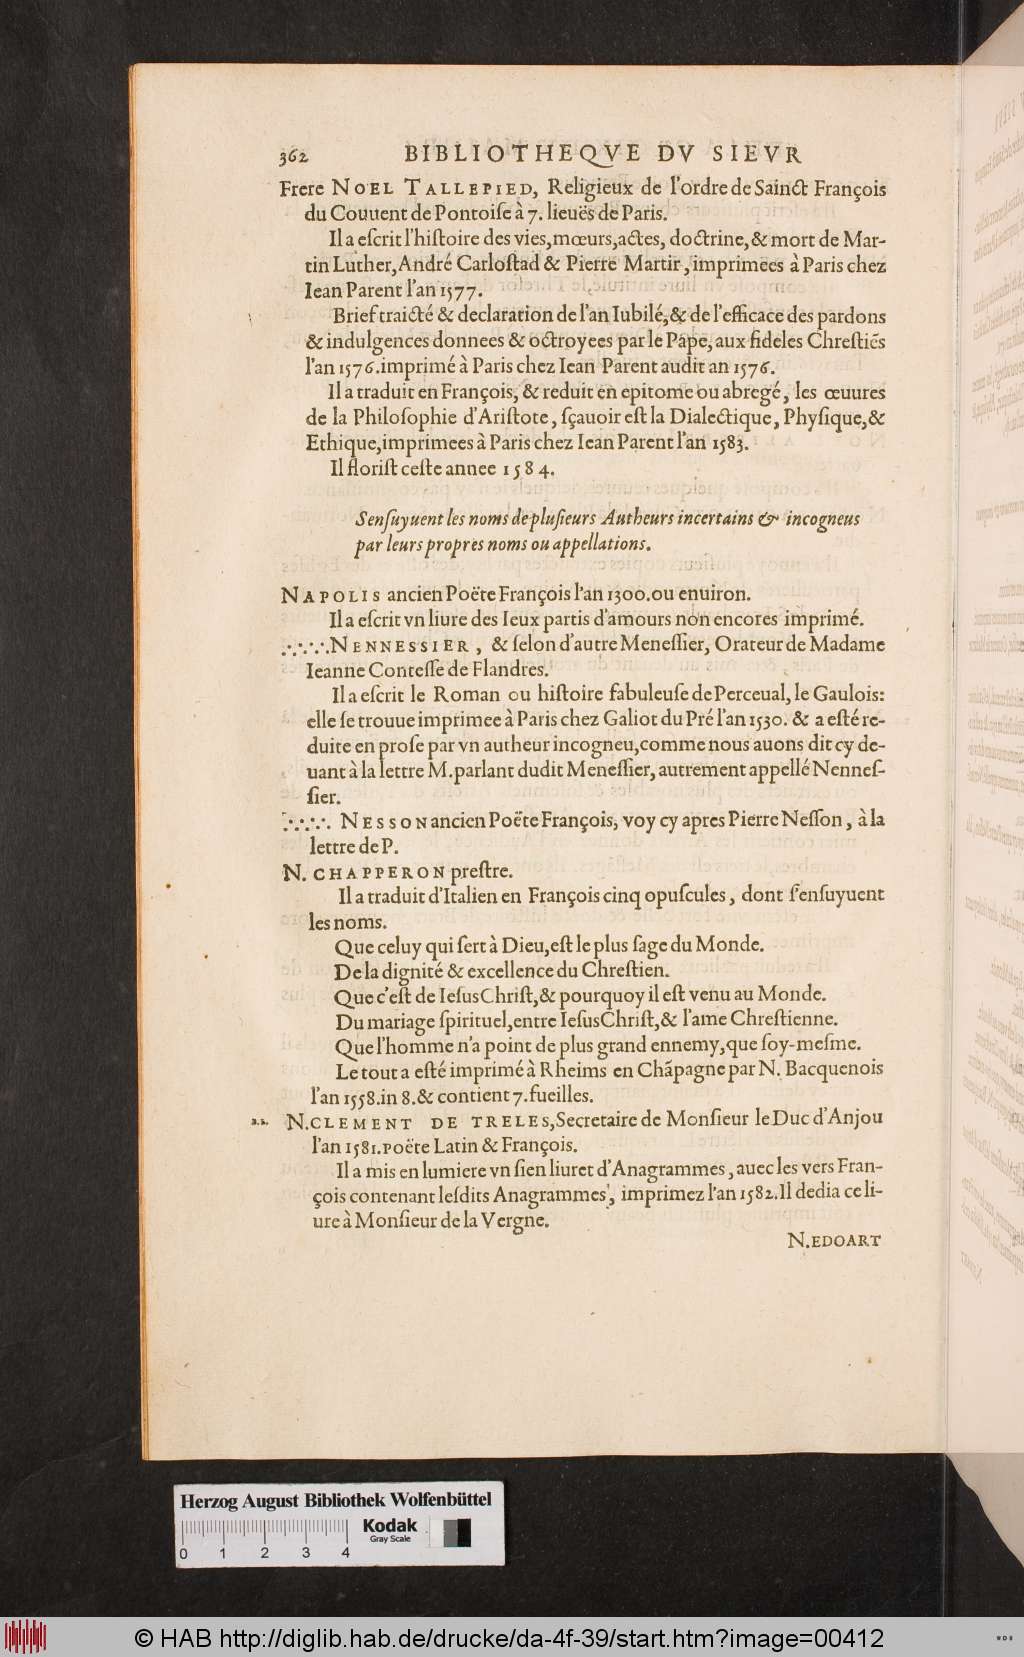 362 BIBLIOTHEQVE DV SIEVR
Frere NOEL TALLEPIED, Religieux de l'ordre de Sainct François
du Couuent de Pontoiſe à 7. lieuës de Paris.
Il a eſcrit l'hiſtoire des vies, mœurs, actes, doctrine, & mort de Mar-
tin Luther, André Carloſtad & Pierre Martir, imprimees à Paris chez
Iean Parent l'an 1577.
Brief traicté & declaration de l'an Iubilé, & de l'efficace des pardons
& indulgences donnees & octroyees par le Pape, aux fideles Chreſtiẽs
l'an 1576. imprimé à Paris chez Iean Parent audit an 1576.
Il a traduit en François, & reduit en epitome ou abregé, les œuures
de la Philoſophie d'Ariſtote, ſçauoir eſt la Dialectique, Phyſique, &
Ethique, imprimees à Paris chez Iean Parent l'an 1583.
Il floriſt ceſte annee 1584.
Senſuyuent les noms de pluſieurs Autheurs incertains & incogneus
par leurs propres noms ou appellations.
NAPOLIS ancien Poëte François l'an 1300. ou enuiron.
Il a eſcrit vn liure des Ieux partis d'amours non encores imprimé.
∴∵∴∵.NENNESSIER, & ſelon d'autre Meneſſier, Orateur de Madame
Ieanne Conteſſe de Flandres.
Il a eſcrit le Roman ou hiſtoire fabuleuſe de Perceual, le Gaulois:
elle ſe trouue imprimee à Paris chez Galiot du Pré l'an 1530. & a eſté re-
duite en proſe par vn autheur incogneu, comme nous auons dit cy de-
uant à la lettre M. parlant dudit Meneſſier, autrement appellé Nenneſ-
ſier.
∴∵∴∵. NESSON ancien Poëte François, voy cy apres Pierre Neſſon, à la
lettre de P.
N. CHAPPERON preſtre.
Il a traduit d'Italien en François cinq opuſcules, dont ſ'enſuyuent
les noms.
Que celuy qui ſert à Dieu, eſt le plus ſage du Monde.
De la dignité & excellence du Chreſtien.
Que c'eſt de Ieſus Chriſt, & pourquoy il eſt venu au Monde.
Du mariage ſpirituel, entre Ieſus Chriſt, & l'ame Chreſtienne.
Que l'homme n'a point de plus grand ennemy, que ſoy-meſme.
Le tout a eſté imprimé à Rheims en Chãpagne par N. Bacquenois
l'an 1558. in 8. & contient 7. fueilles.
N. CLEMENT DE TRELES, Secretaire de Monſieur le Duc d'Anjou
l'an 1581. poëte Latin & François.
Il a mis en lumiere vn ſien liuret d'Anagrammes, auec les vers Fran-
çois contenant leſdits Anagrammes, imprimez l'an 1582. Il dedia ce li-
ure à Monſieur de la Vergne.
N. EDOART
Herzog August Bibliothek Wolfenbüttel
Kodak
Gray Scale
0 1 2 3 4
© HAB http://diglib.hab.de/drucke/da-4f-39/start.htm?image=00412